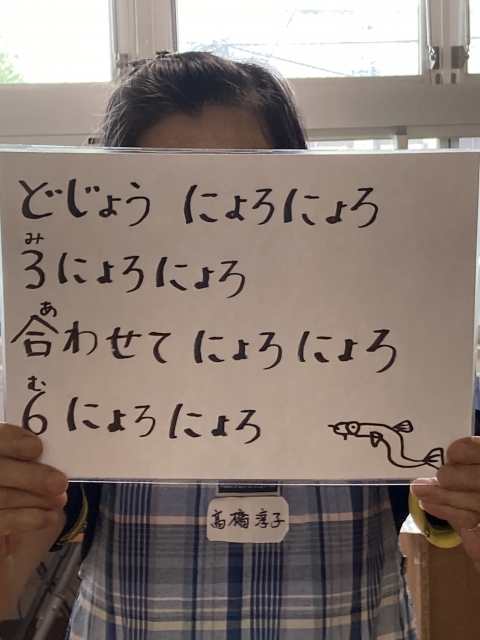 どじょう にょろにょろ
み
3 にょろにょろ
あ
合わせて にょろにょろ
む
6 にょろにょろ
高橋 淳子